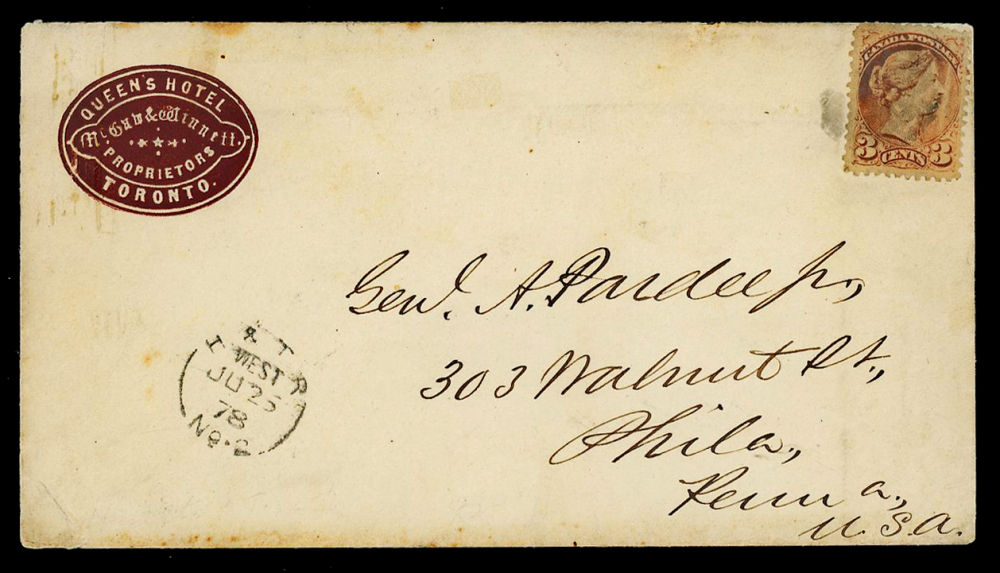 QUEEN'S HOTEL
McGaw & Winnett.
PROPRIETORS
TORONTO.
CANADA POSTAGE
3 CENTS 3
Genl. A. Pardee Jr.,
303 Walnut St.,
Phila.,
Penna.,
U.S.A.
T & T R
WEST
JU 25
78
No. 2